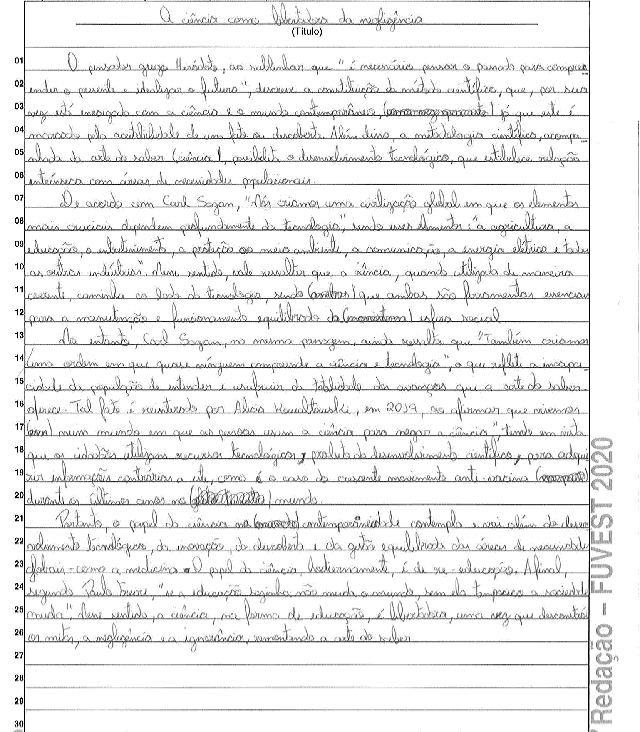 A ciência como libertadora da negligência
(Título)
01 O pensador grego Heródoto, ao sublinhar que "é necessário pensar o passado para compree
02 ender o presente e idealizar o futuro", descreve a constituição do método científico, que, por sua
03 vez está enraizado com a ciência e o mundo contemporâneo já que este é
04 marcado pela de um fato ou descoberta. Além disso, a metodologia científica, acompa
05 nhada da arte do saber (ciência), possibilita o desenvolvimento tecnológico, que estabelece relação
06 intrínseca com áreas de necessidades populacionais.
07 De acordo com Carl Sagan, "Nós criamos uma civilização global em que os elementos
08 mais cruciais dependem profundamente da tecnologia", sendo esses elementos: "a agricultura, a
09 educação, o entretenimento, a proteção ao meio ambiente, a comunicação, a energia elétrica e todas
10 as outras indústrias". Nesse sentido, vale ressaltar que a ciência, quando utilizada de maneira
11 coerente, caminha ao lado da tecnologia, sendo que ambas são ferramentas essenciais
12 para a manutenção e funcionamento equilibrado da esfera social.
13 No entanto, Carl Sagan, na mesma passagem, ainda ressalta que "Também criamos
14 uma ordem em que quase ninguém compreende a ciência e tecnologia", o que reflete a incapa
15 cidade da população de entender e usufruir da totalidade dos avanços que a arte do saber
16 oferece. Tal fato é reiterado por Alicia Kowaltowski, em 2019, ao afirmar que vivemos
17 num mundo em que as pessoas usam a ciência para negar a ciência" tendo em vista
18 que os cidadãos utilizam recursos tecnológicos, produto do desenvolvimento científico, para adqui
19 rir informações contrárias a ele, como é o caso do crescente movimento anti-vacina
20 durante os últimos anos no mundo.
21 Portanto, o papel da ciência na contemporaneidade contempla e vai além do desen
22 volvimento tecnológico, da inovação, da descoberta e da gestão equilibrada das áreas de necessidade
23 globais - como a medicina. O papel da ciência, hodiernamente, é de re-educação. Afinal,
24 segundo Paulo Freire, "se a educação sozinha não muda o mundo, sem ela tampouco a sociedade
25 muda" nesse sentido, a ciência, na forma de educação, é libertadora, uma vez que desconstrói
26 os mitos, a negligência e a ignorância, remontando a arte do saber.
27
28
29
30
Redação – FUVEST 2020